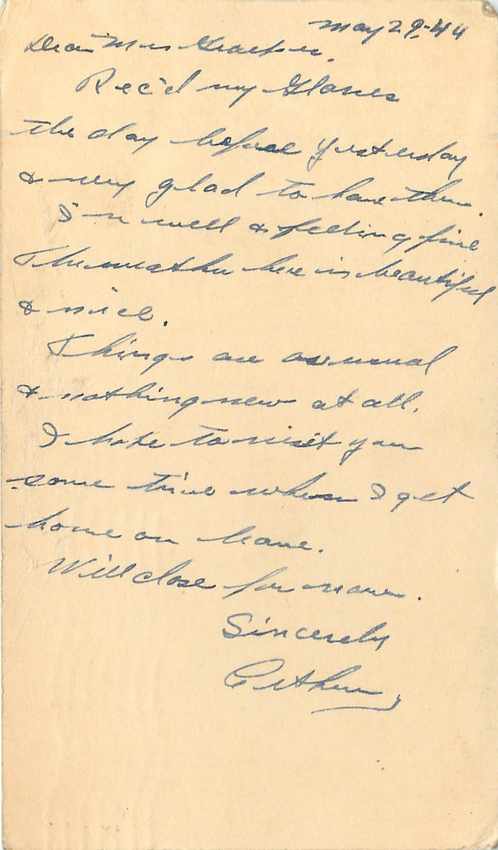 May 29, 44
Dear Mrs
Rec'd my Glasses
the day before yesterday
& very glad to have them.
I'm well & feeling fine
The weather here is beautiful
& nice.
Things are as usual
& nothing new at all.
I hope to visit you
some time when I get
home on leave.
Will close for now.
Sincerely
Arthur